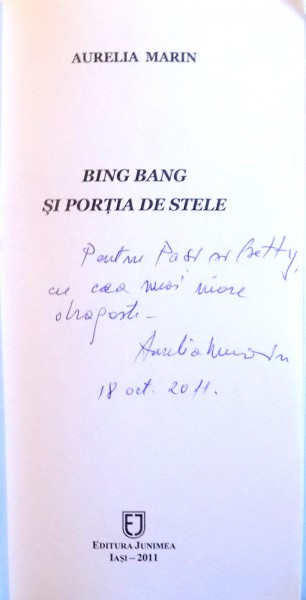 AURELIA MARIN
BING BANG
ŞI PORŢIA DE STELE
Pentru PaSi si Betty,
cu cea mai mare
dragoste –
Aurelia Marin
18 oct. 2011.
EJ
EDITURA JUNIMEA
IAŞI – 2011